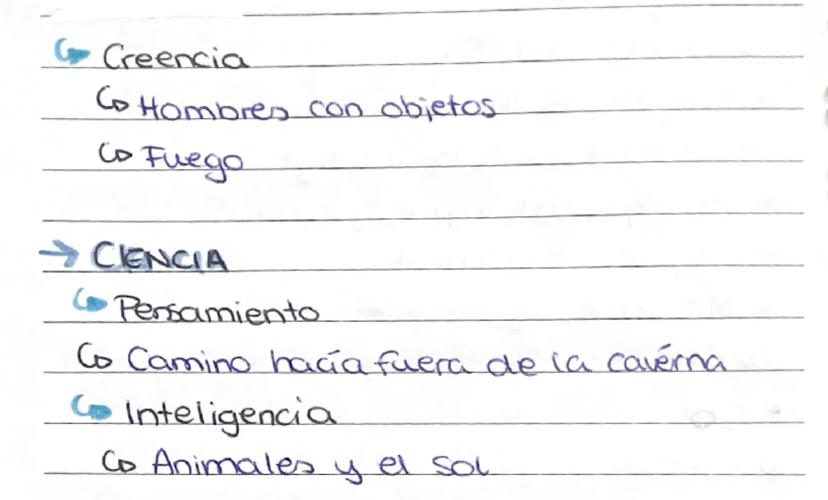 ↳ Creencia
↳ Hombres con objetos
↳ Fuego
→ CIENCIA
↳ Pensamiento
↳ Camino hacía fuera de la cavérna
↳ Inteligencia
↳ Animales y el sol